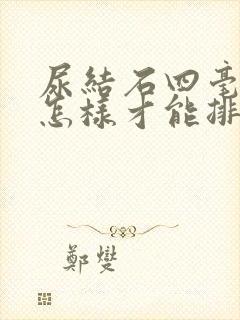 尿結石四毫
怎樣才能排
鄭燮